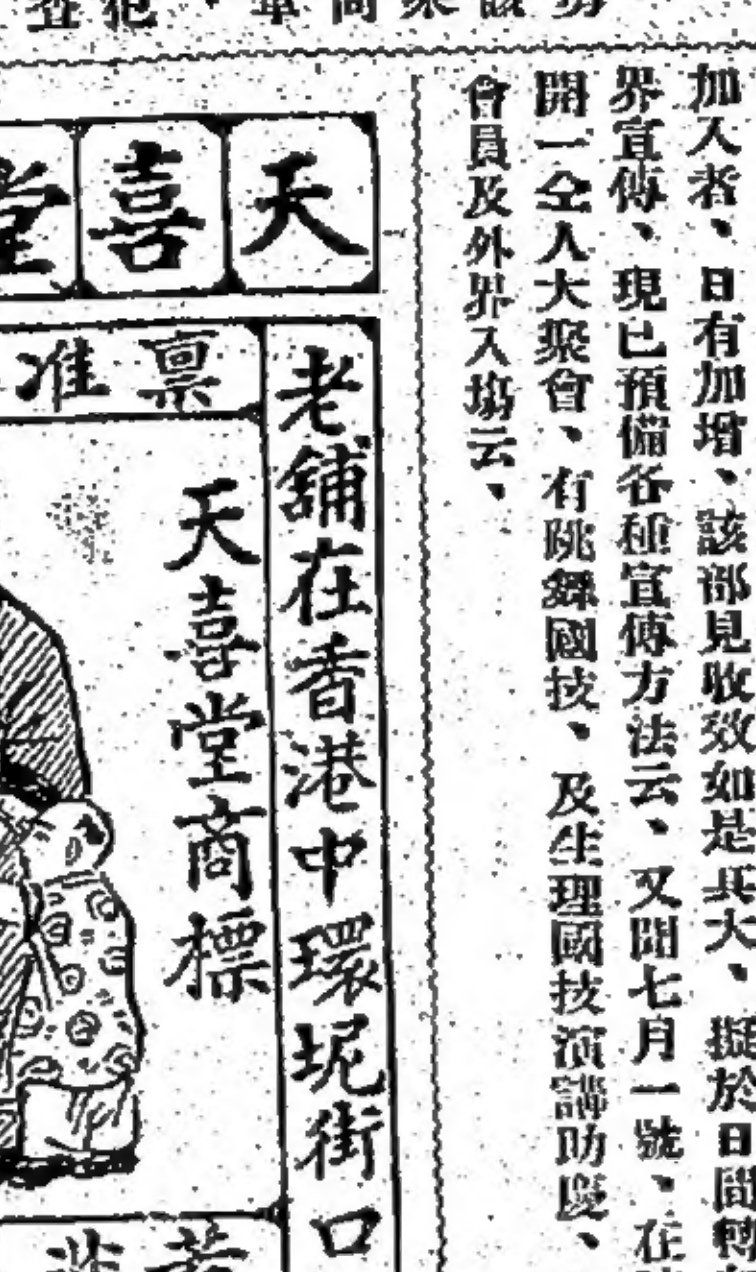 加入者、日有加增、該部見收效如是其大、擬於日間轉
界宣傳、現已預備各種宣傳方法云、又聞七月一號、在
開一仝人大聚會、有跳舞國技、及生理國技演講助慶、
會員及外界入塲云、
天喜堂
稟准
老舖在香港中環坭街口
天喜堂商標